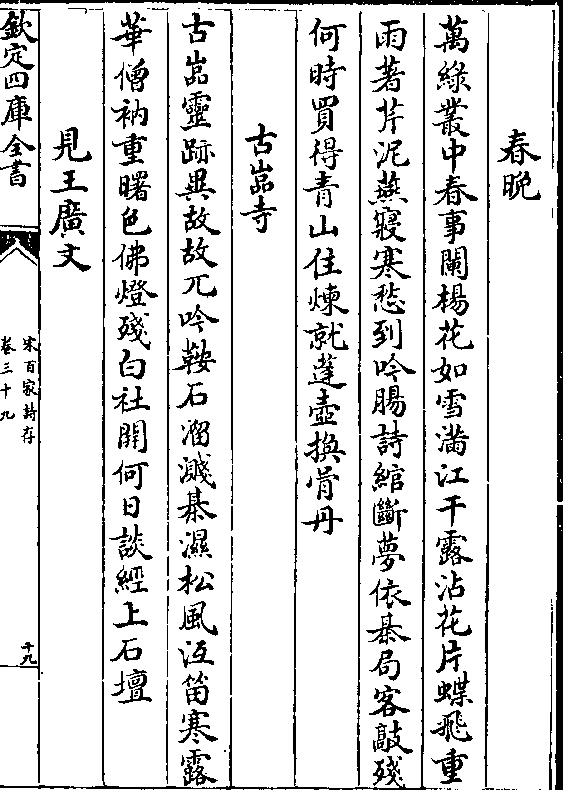 春晚
萬綠叢中春事闌楊花如雪滿江干露沾花片蝶飛重
雨著芹泥燕寢寒愁到吟腸詩綰斷夢依棊局客敲殘
何時買得青山住煉就蓬壺換骨丹
古嵓寺
古嵓靈跡異故故兀吟鞍石溜濺棊濕松風沍笛寒露
華僧衲重曙色佛燈殘白社開何日談經上石壇
見王廣文
欽定四庫全書
宋百家詩存
卷三十九
十九